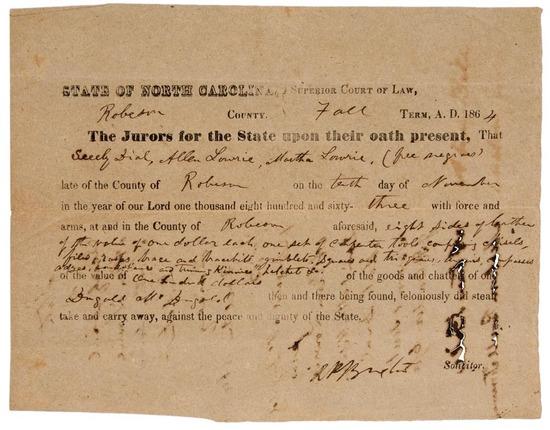 STATE OF NORTH CAROLINA, Superior Court of Law,
Robeson County. Fall Term, A. D. 1864
The Jurors for the State upon their oath present, That
Dial, Allen Lowrie, Martha Lowrie, (free negroes)
late of the County of Robeson on the tenth day of November
in the year of our Lord one thousand eight hundred and sixty-three with force and
arms, at and in the County of Robeson aforesaid, eight sides of leather
of the value of one dollar each, one set of carpenter tools chisels,
files, brace and
hatchet &c
of the value of one hundred dollars of the goods and chattels of one
Dugald Mc Dugald then and there being found, feloniously did steal
take and carry away, against the peace and dignity of the State.
Solicitor.